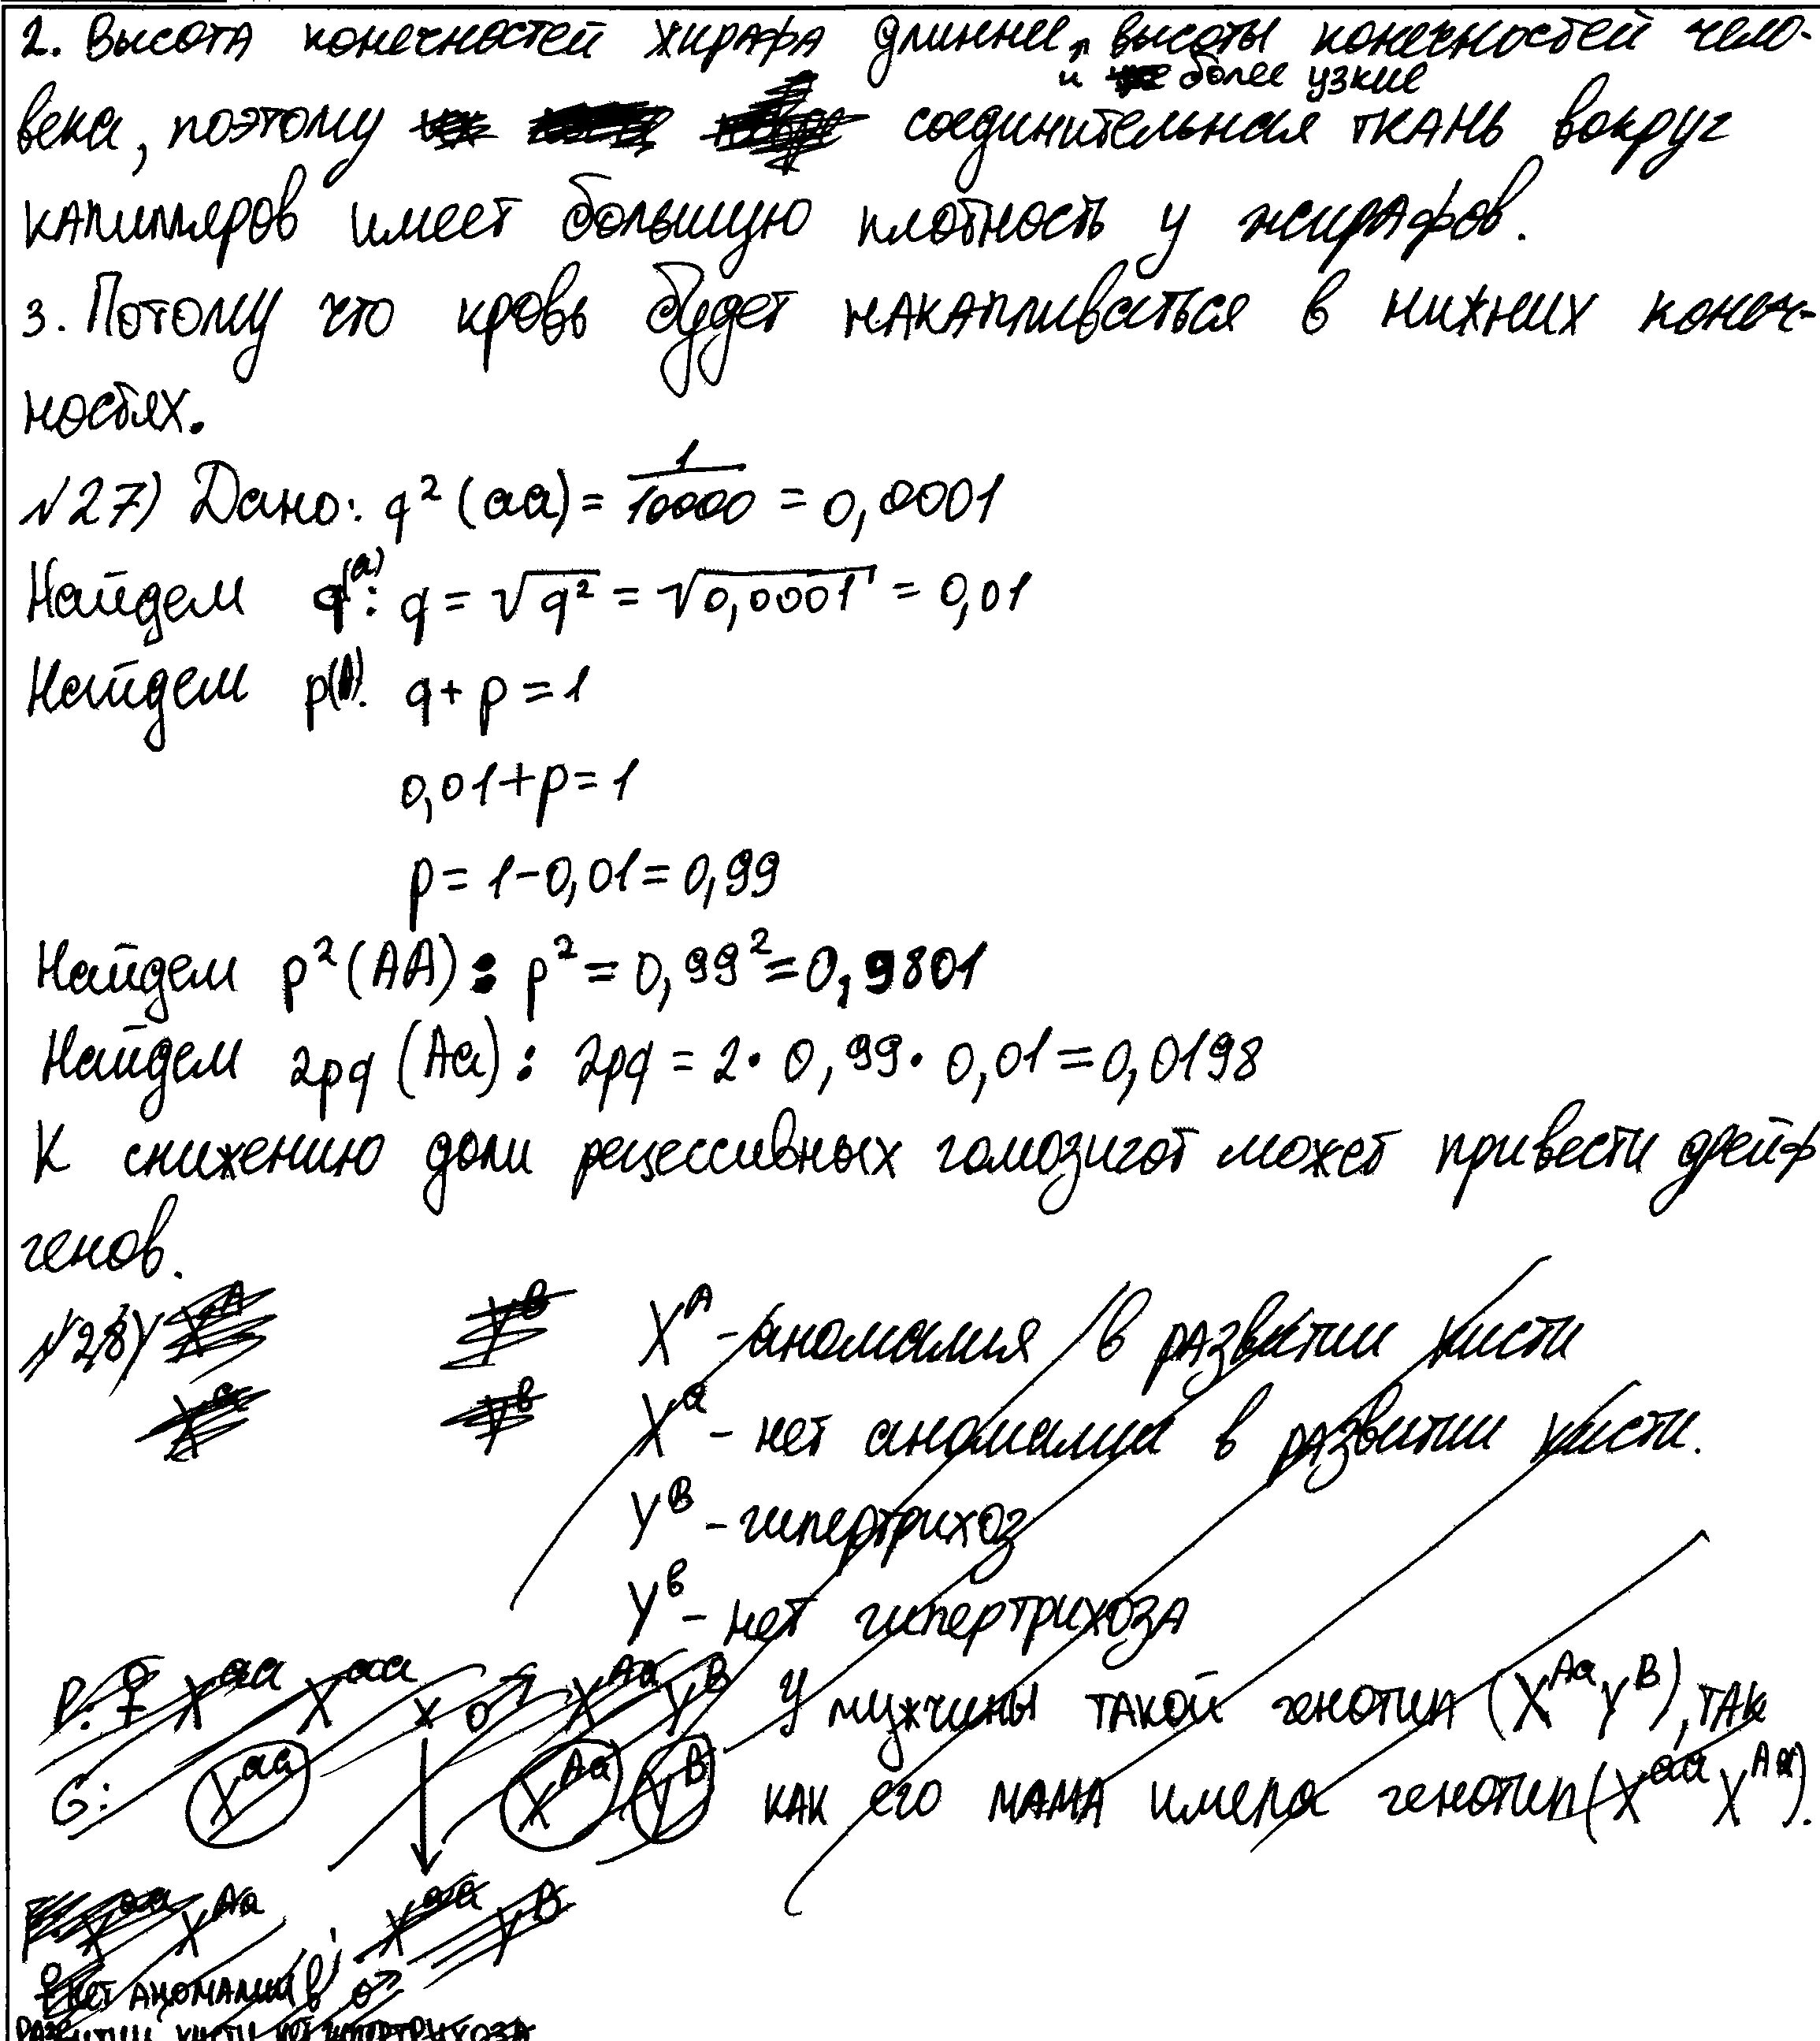 2. Высота конечностей жирафа длиннее, высоты конечностей чело-
и более узкие
века, поэтому соединительная ткань вокруг
капилляров имеет большую плотность у жирафов.
3. Потому что кровь будет накапливаться в нижних конеч-
ностях.
№27) Дано: q² (aa) = 1/10000 = 0,0001
Найдем q(a): q = √q² = √0,0001 = 0,01
Найдем p(A): q + p = 1
0,01 + p = 1
p = 1 - 0,01 = 0,99
Найдем p² (AA): p² = 0,99² = 0,9801
Найдем 2pq (Aa): 2pq = 2 · 0,99 · 0,01 = 0,0198
К снижению доли рецессивных гомозигот может привести дрейф
генов.
№28) X^A Y^B X^A - аномалия в развитии кисти
X^a Y^b X^a - нет аномалии в развитии кисти.
Y^B - гипертрихоз
Y^b - нет гипертрихоза
P: ♀ X^aa X^aa x ♂ X^Aa Y^B У мужчины такой генотип (X^Aa Y^B), так
G: X^aa X^Aa Y^B как его мама имела генотип (X^aa X^Aa).
F: X^aa X^Aa ; X^aa Y^B
♀ нет аномалии в ♂
развитии кисти нет гипертрихоза